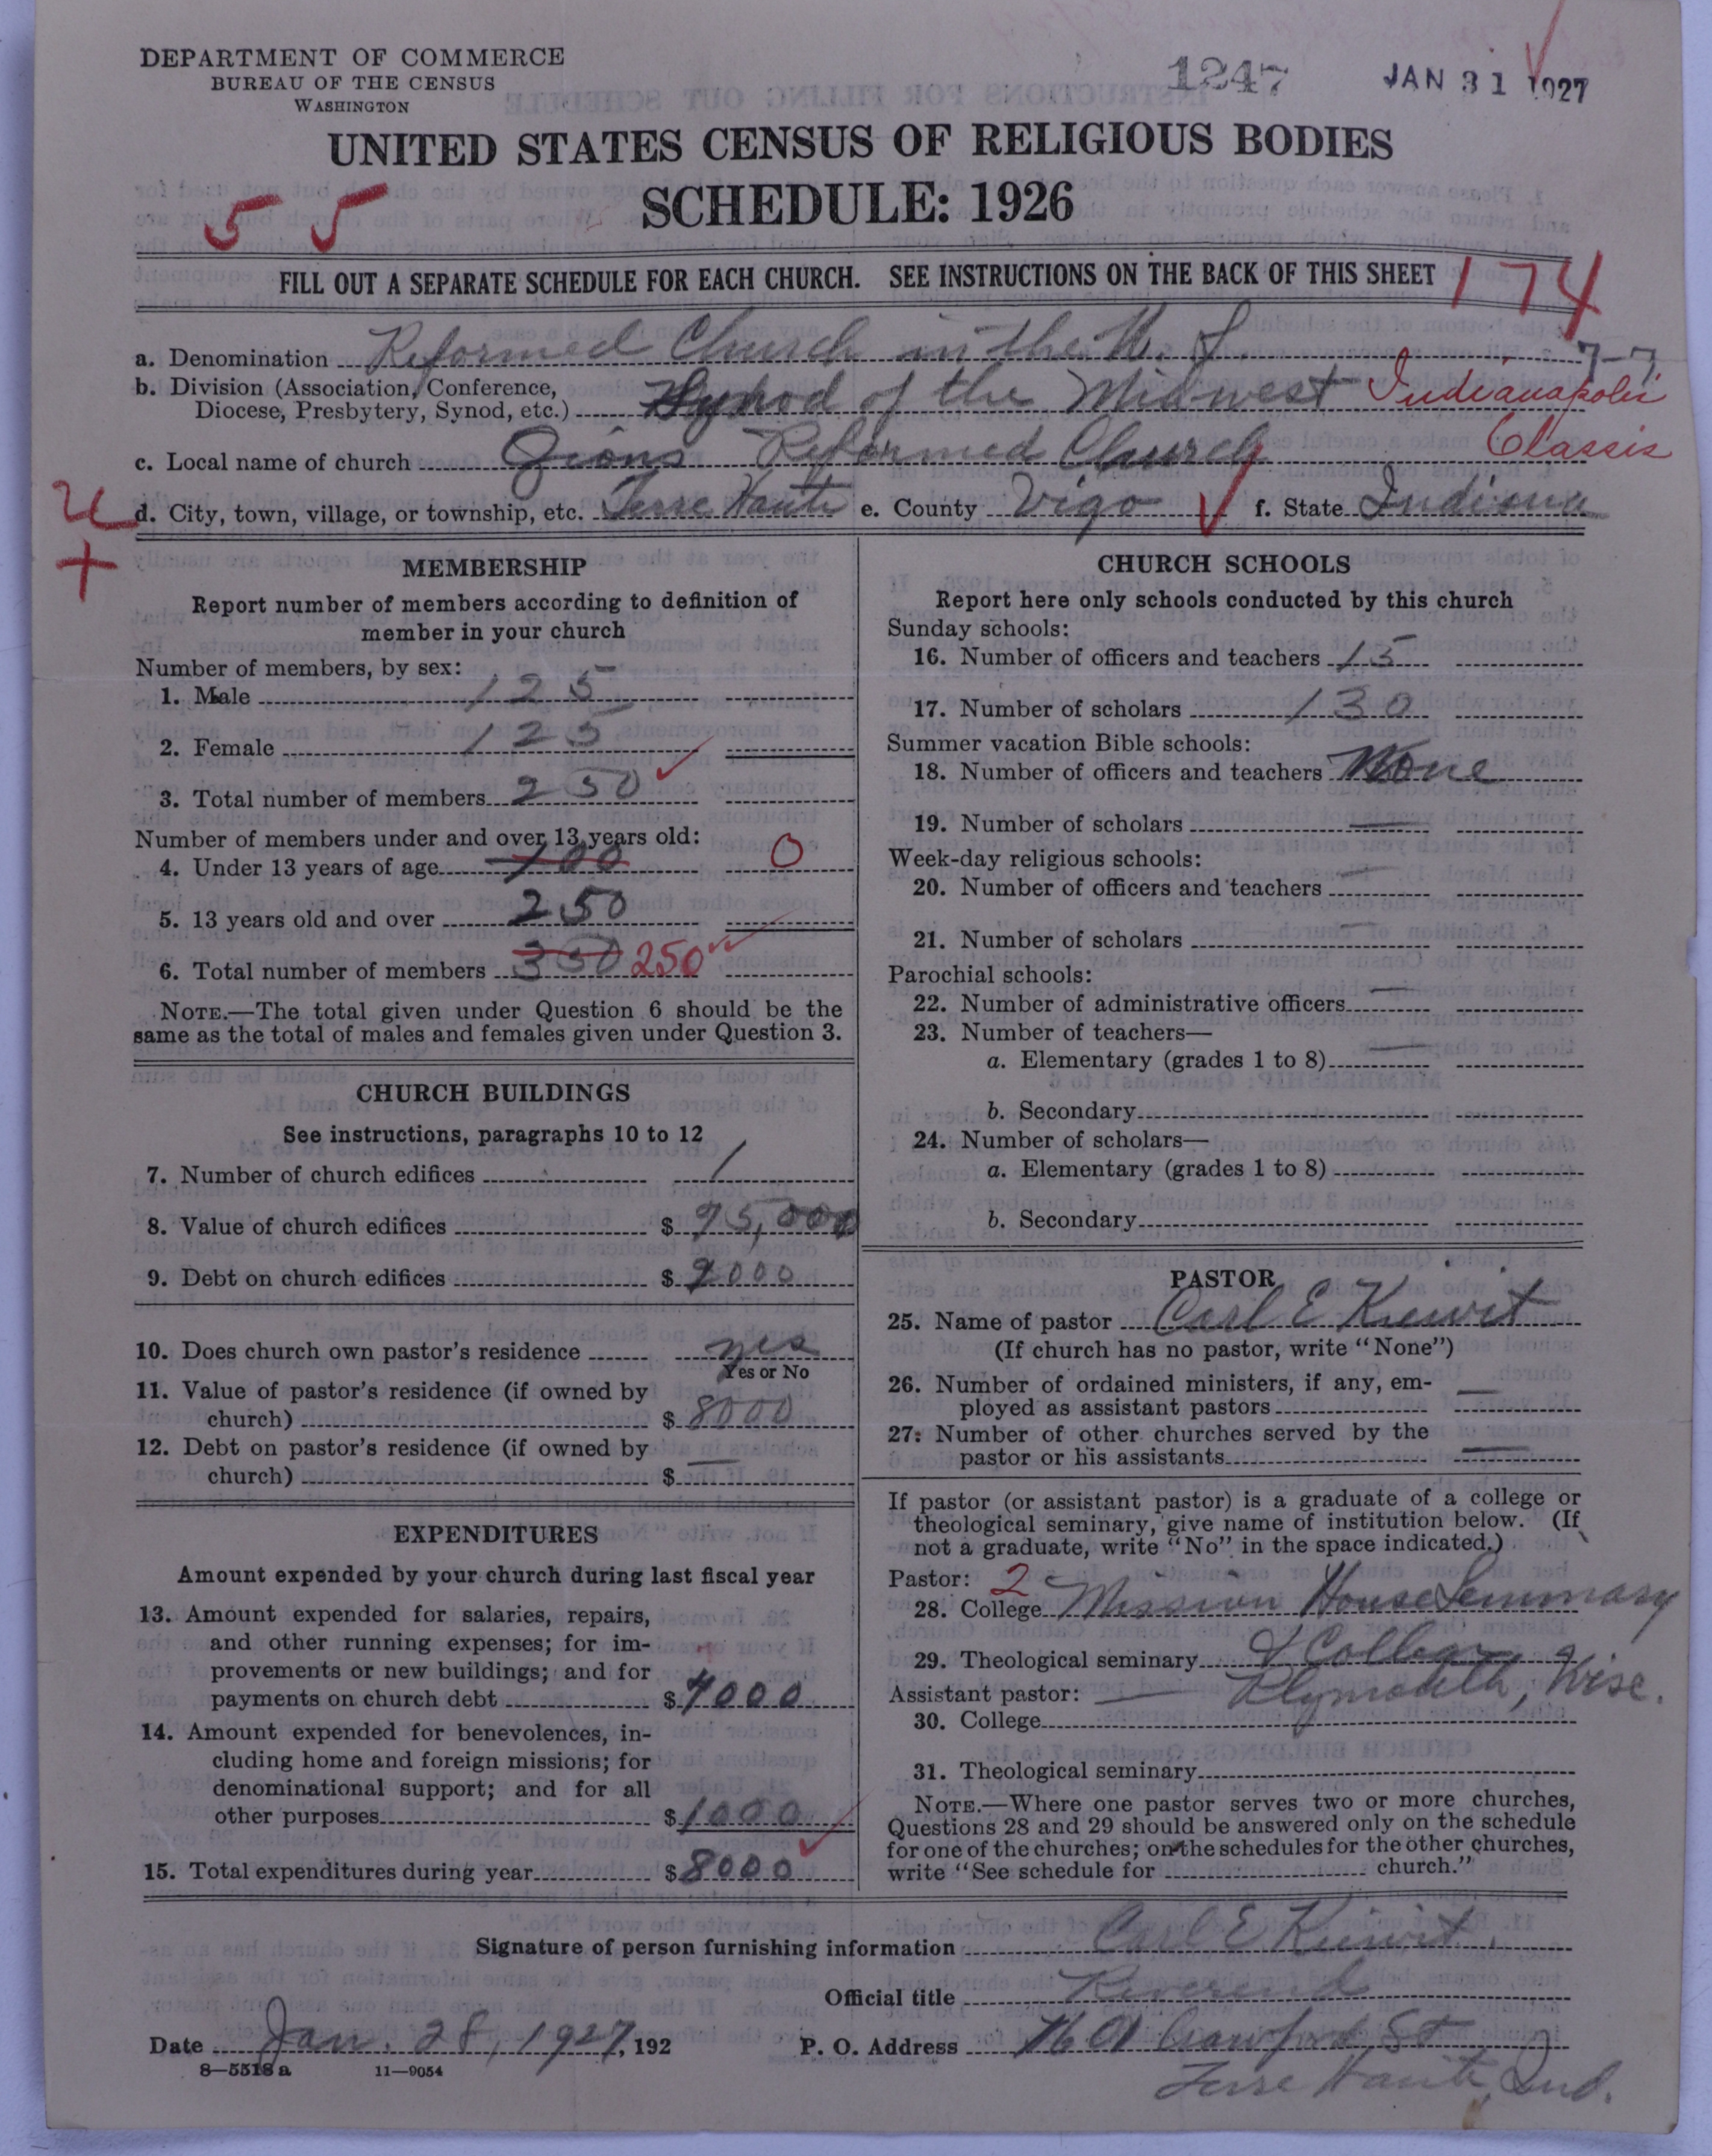 DEPARTMENT OF COMMERCE
BUREAU OF THE CENSUS
WASHINGTON
1247
JAN 31 1927
UNITED STATES CENSUS OF RELIGIOUS BODIES
SCHEDULE: 1926
5 5
FILL OUT A SEPARATE SCHEDULE FOR EACH CHURCH. SEE INSTRUCTIONS ON THE BACK OF THIS SHEET
174
a. Denomination Reformed Church in the U. S. 7-7
b. Division (Association, Conference, Diocese, Presbytery, Synod, etc.) Synod of the Midwest Indianapolis
Classis
c. Local name of church Zions Reformed Church
d. City, town, village, or township, etc. Terre Haute e. County Vigo f. State Indiana
MEMBERSHIP
Report number of members according to definition of
member in your church
Number of members, by sex:
1. Male 125
2. Female 125
3. Total number of members 250
Number of members under and over 13 years old:
4. Under 13 years of age 100 0
5. 13 years old and over 250
6. Total number of members 350 250
NOTE.—The total given under Question 6 should be the
same as the total of males and females given under Question 3.
CHURCH BUILDINGS
See instructions, paragraphs 10 to 12
7. Number of church edifices 1
8. Value of church edifices $ 95,000
9. Debt on church edifices $ 9000
10. Does church own pastor's residence yes
Yes or No
11. Value of pastor's residence (if owned by
church) $ 8000
12. Debt on pastor's residence (if owned by
church) $ —
EXPENDITURES
Amount expended by your church during last fiscal year
13. Amount expended for salaries, repairs,
and other running expenses; for im-
provements or new buildings; and for
payments on church debt $ 7000
14. Amount expended for benevolences, in-
cluding home and foreign missions; for
denominational support; and for all
other purposes $ 1000
15. Total expenditures during year $ 8000
CHURCH SCHOOLS
Report here only schools conducted by this church
Sunday schools:
16. Number of officers and teachers 15
17. Number of scholars 130
Summer vacation Bible schools:
18. Number of officers and teachers None
19. Number of scholars —
Week-day religious schools:
20. Number of officers and teachers —
21. Number of scholars
Parochial schools:
22. Number of administrative officers —
23. Number of teachers—
a. Elementary (grades 1 to 8) —
b. Secondary
24. Number of scholars—
a. Elementary (grades 1 to 8)
b. Secondary
PASTOR
25. Name of pastor Carl E Kuwit
(If church has no pastor, write "None")
26. Number of ordained ministers, if any, em-
ployed as assistant pastors —
27. Number of other churches served by the
pastor or his assistants —
If pastor (or assistant pastor) is a graduate of a college or
theological seminary, give name of institution below. (If
not a graduate, write "No" in the space indicated.)
Pastor: 2
28. College Mission House Seminary
29. Theological seminary & College
Assistant pastor: — Plymouth, Wisc.
30. College
31. Theological seminary
NOTE.—Where one pastor serves two or more churches,
Questions 28 and 29 should be answered only on the schedule
for one of the churches; on the schedules for the other churches,
write "See schedule for church."
Signature of person furnishing information Carl E Kuwit
Official title Reverend
Date Jan. 28, 1927, 192
P. O. Address 1601 Crawford St
Terre Haute, Ind.
8—5518 a 11—9054